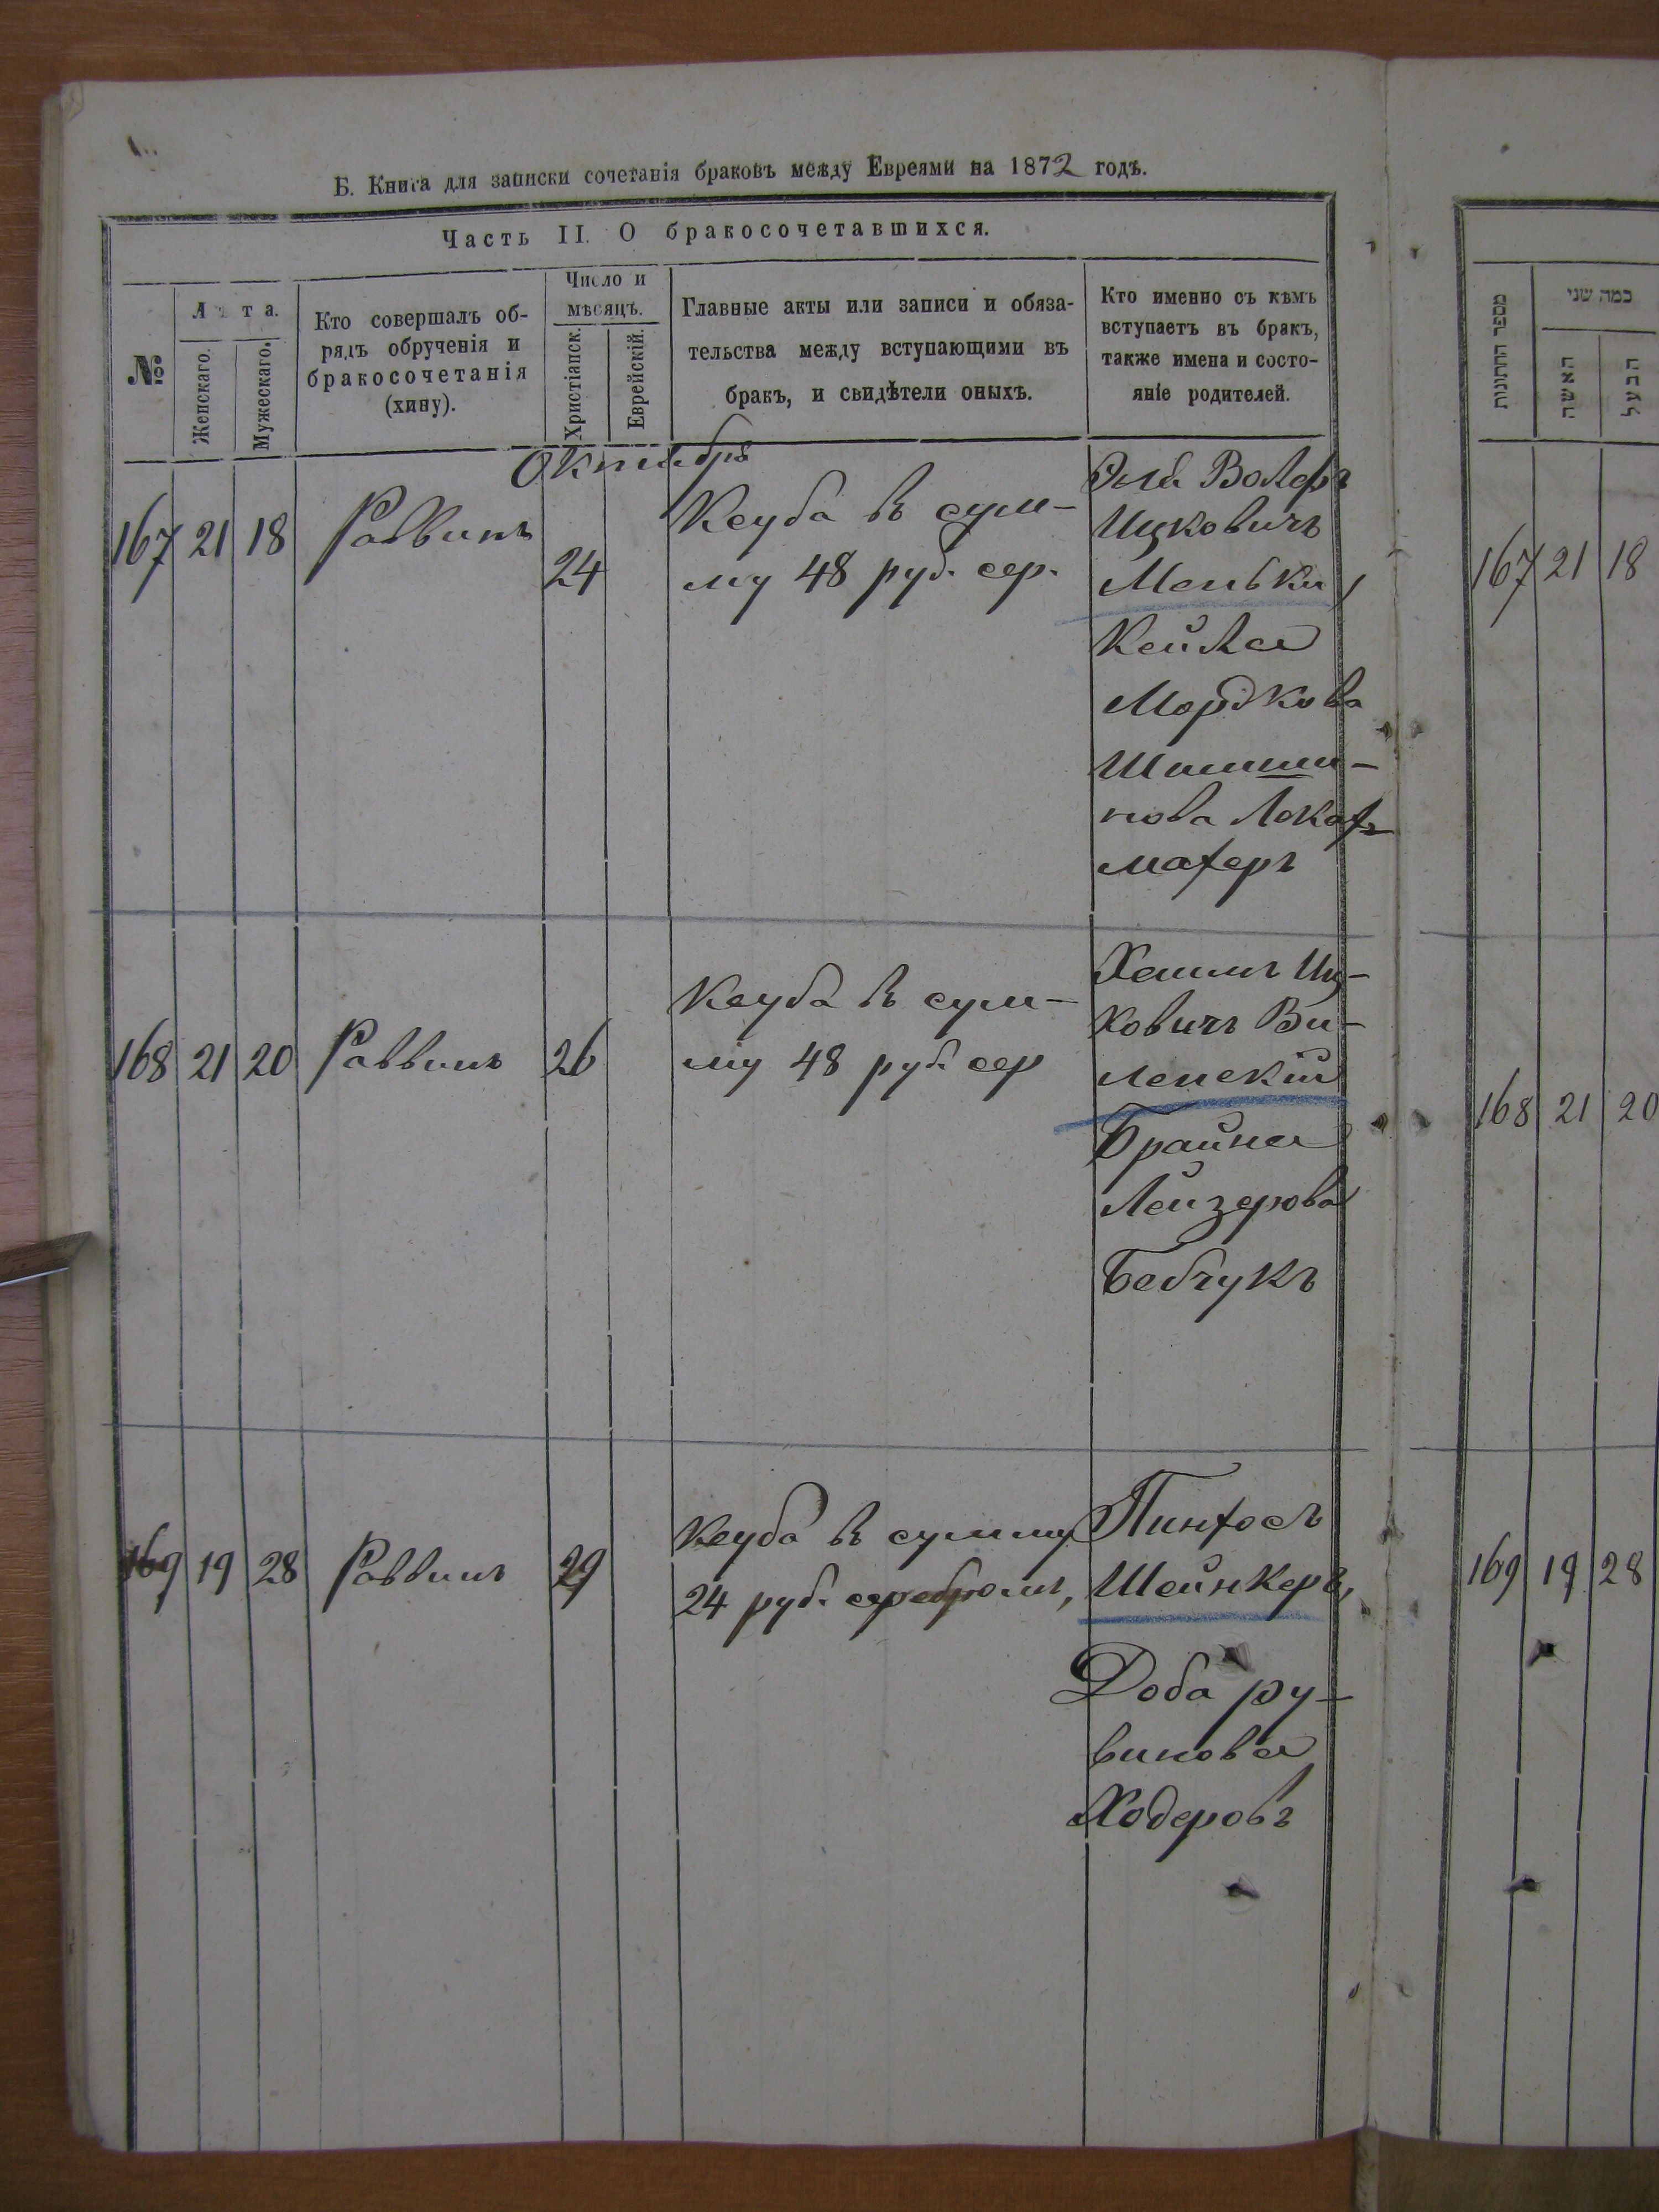 Б. Книга для записки сочетанія браковъ между Евреями на 1872 годъ.
Часть II. О бракосочетавшихся.
№
Лѣта.
Женскаго.
Мужескаго.
Кто совершалъ об-
рядъ обрученія и
бракосочетанія
(хину).
Число и
мѣсяцъ.
Христіанск.
Еврейскій.
Главные акты или записи и обяза-
тельства между вступающими въ
бракъ, и свидѣтели оныхъ.
Кто именно съ кѣмъ
вступаетъ въ бракъ,
также имена и состо-
яніе родителей.
Октябрь
167 21 18 Раввинъ 24
Кеуба въ сум-
му 48 руб. сер.
Эля Волфъ
Ицковичъ
Менькн,
Кейля
Мордкова
нова
махеръ
168 21 20 Раввинъ 26
Кеуба въ сум-
му 48 руб. сер
Хаимъ Иц-
ковичъ Ви-
ленскій
Брайна
Лейзерова
Бебчукъ
169 19 28 Раввинъ 29
Кеуба въ сумму
24 руб. серебромъ,
Пинхосъ
Шейнкеръ,
Доба ру-
винова
Ходеровъ
מספר החתונות
כמה שני
האשה
הבעל
167 21 18
168 21 20
169 19 28